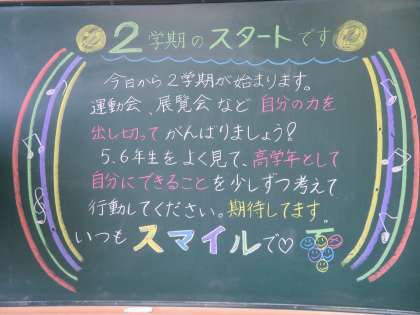 2学期のスタートです
今日から2学期が始まります。
運動会、展覧会など自分の力を
出し切ってがんばりましょう!
5.6年生をよく見て、高学年として
自分にできることを少しずつ考えて
行動してください。期待してます。
いつもスマイルで♡